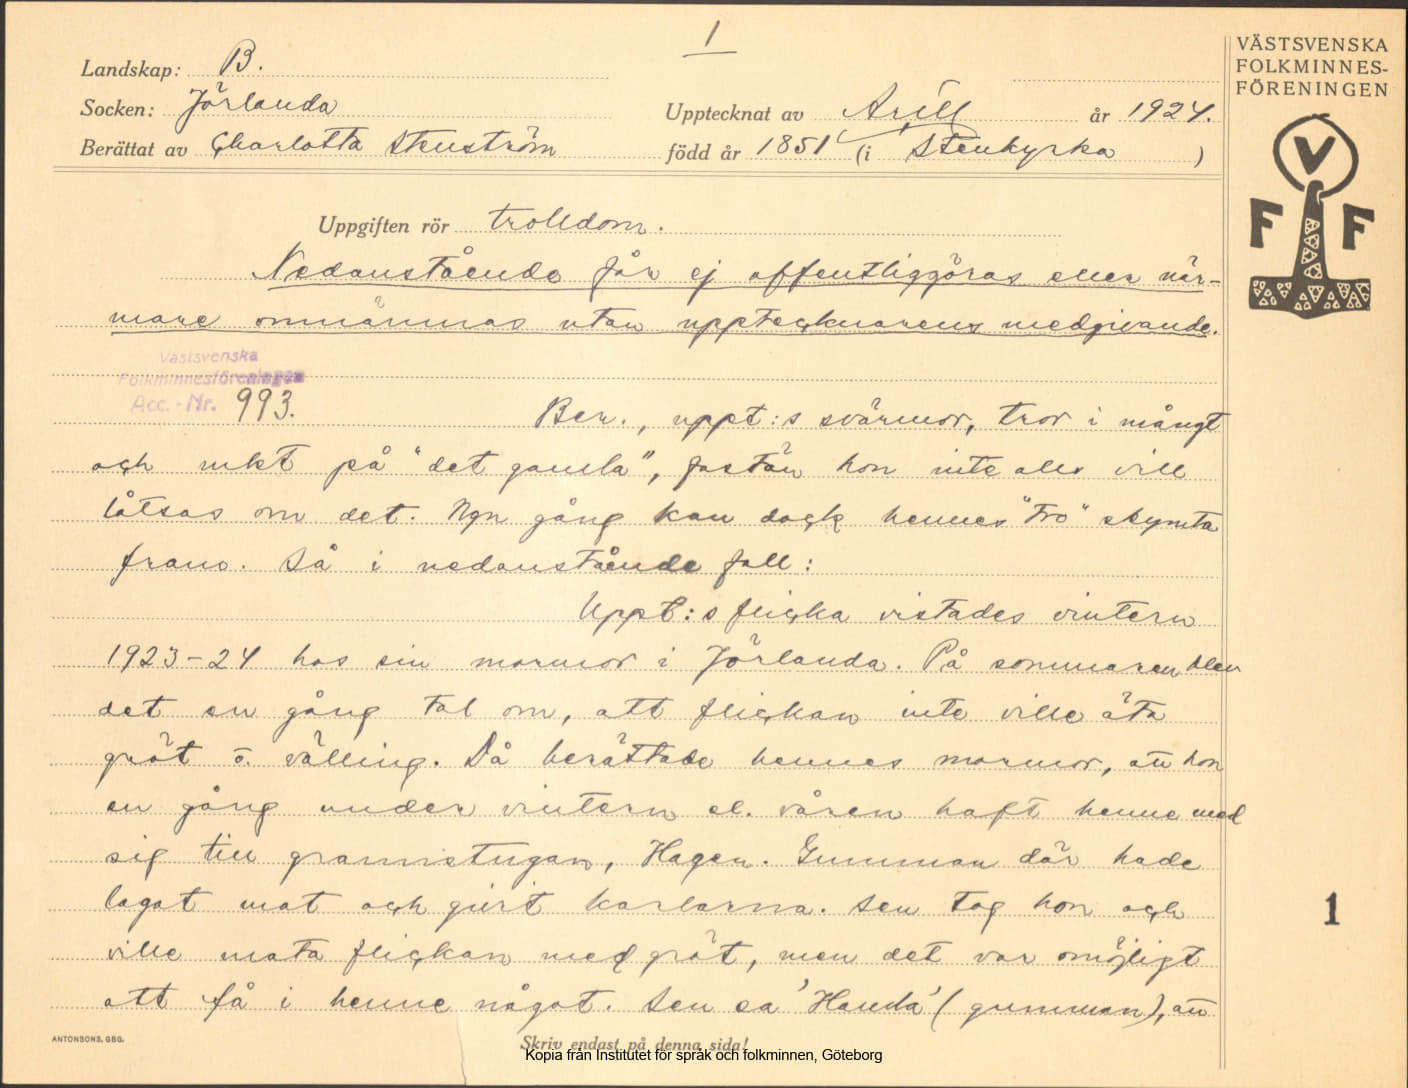 1
VÄSTSVENSKA
FOLKMINNES-
FÖRENINGEN
V
F F
Landskap: B.
Socken: Jörlanda
Upptecknat av Arill år 1924.
Berättat av Charlotta Stenström
född år 1851 (i Stenkyrka )
Uppgiften rör trolldom.
Nedanstående får ej offentliggöras eller när-
mare omnämnas utan upptecknarens medgivande.
Västsvenska
Folkminnesföreningen
Acc. - Nr. 993.
Ber., uppt:s svärmor, tror i mångt
och mkt på "det gamla", fastän hon inte alls vill
låtsas om det. Ngn gång kan dock hennes "tro" skymta
fram. Så i nedanstående fall:
Uppt:s flicka vistades vintern
1923-24 hos sin mormor i Jörlanda. På sommaren blev
det en gång tal om, att flickan inte ville äta
gröt o. välling. Då berättade hennes mormor, att hon
en gång under vintern el. våren haft henne med
sig till grannstugan, Hagen. Gumman där hade
lagat mat och givit karlarna. Sen tog hon och
ville mata flickan med gröt, men det var omöjligt
att få i henne något. Sen sa 'Handa' (gumman), att
ANTONSONS, GBG.
Skriv endast på denna sida!
Kopia från Institutet för språk och folkminnen, Göteborg
1